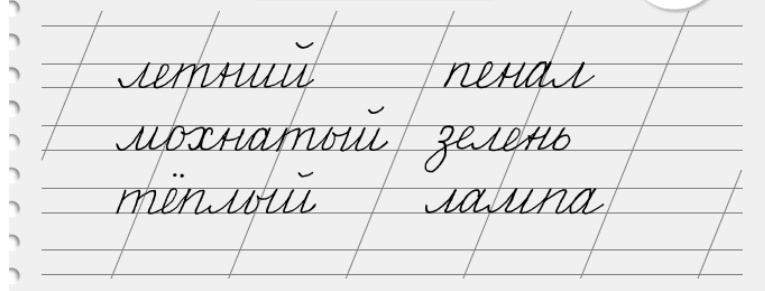 летний пенал
мохнатый зелень
тёплый лампа